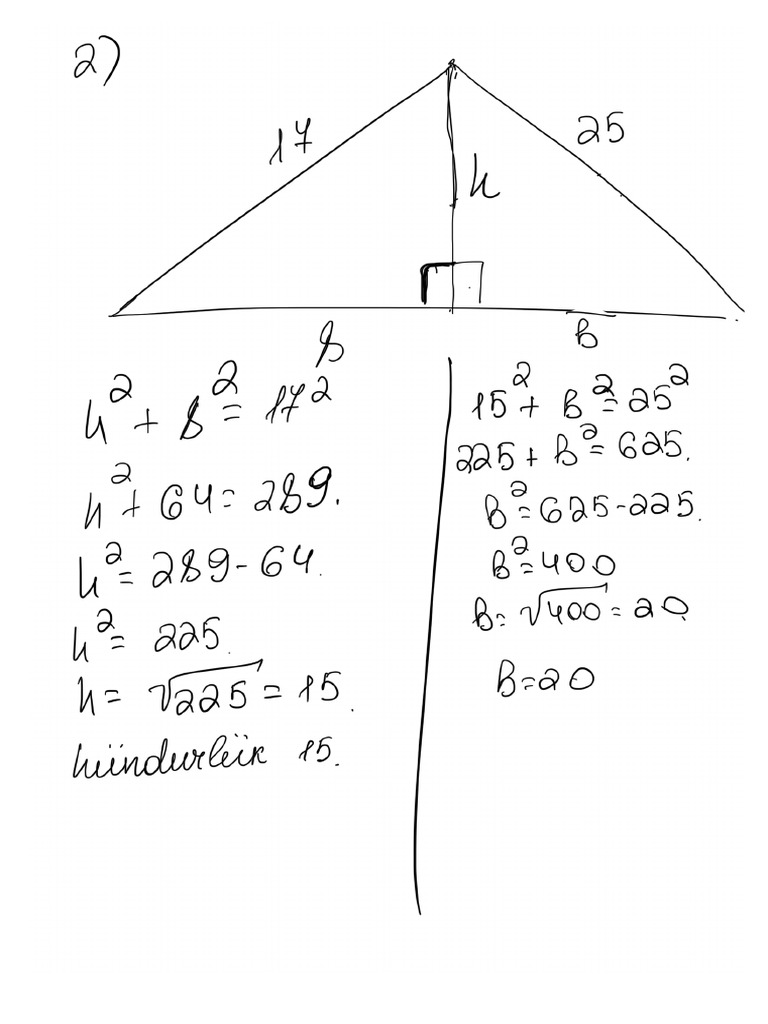 2)
17
25
h
8
B
h² + 8² = 17²
h² + 64 = 289.
h² = 289 - 64.
h² = 225.
h = √225 = 15.
hündürlük 15.
15² + B² = 25²
225 + B² = 625.
B² = 625 - 225.
B² = 400
B = √400 = 20.
B = 20